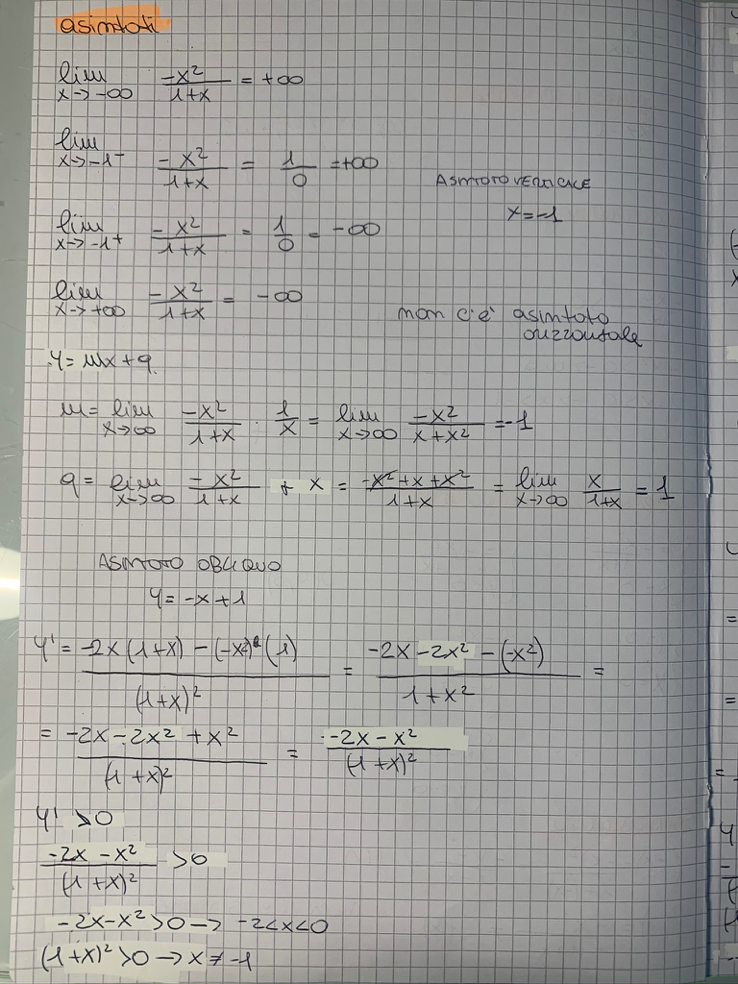 asintoti
lim x→-∞ -x²/(1+x) = +∞
lim x→-1⁻ -x²/(1+x) = 1/0 = +∞
ASINTOTO VERTICALE
x=-1
lim x→-1⁺ -x²/(1+x) = 1/0 = -∞
lim x→+∞ -x²/(1+x) = -∞
non c'è asintoto
orizzontale
y = mx+q
m = lim x→∞ -x²/(1+x) · 1/x = lim x→∞ -x²/(x+x²) = -1
q = lim x→∞ -x²/(1+x) + x = (-x²+x+x²)/(1+x) = lim x→∞ x/(1+x) = 1
ASINTOTO OBLIQUO
y = -x+1
y' = (-2x(1+x) - (-x²)(1))/(1+x)² = (-2x-2x²-(-x²))/(1+x²) =
= (-2x-2x²+x²)/(1+x)² = (-2x-x²)/(1+x)²
y' >0
(-2x-x²)/(1+x)² >0
-2x-x²>0 → -2<x<0
(1+x)²>0 → x≠-1